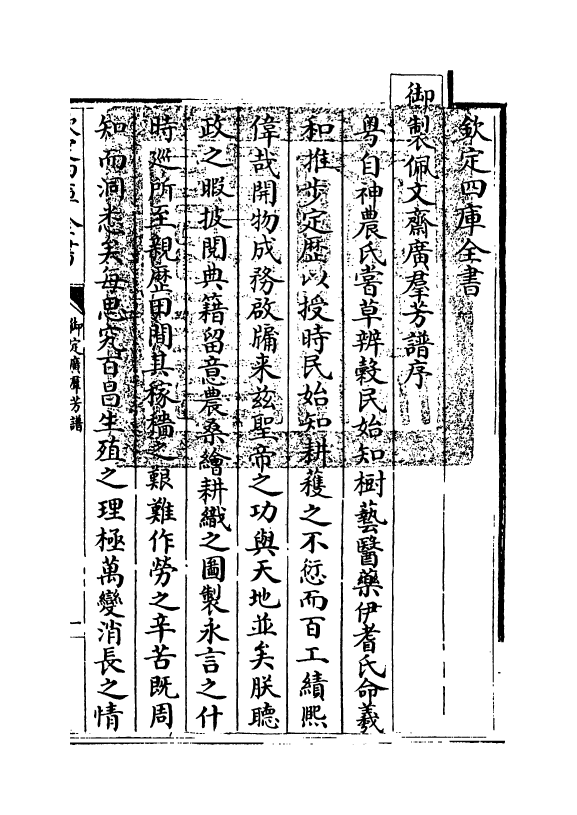 欽定四庫全書
御製佩文齋廣羣芳譜序
粤自神農氏嘗草辨穀民始知樹藝醫藥伊耆氏命羲
和推步定歴以授時民始知耕穫之不愆而百工績熈
偉哉開物成務啟牖来兹聖帝之功與天地並矣朕聽
政之暇披閲典籍留意農桑繪耕織之圖製永言之什
時廵所至親歴田間其稼穡之艱難作勞之辛苦既周
知而洞悉矣每思究百昌生殖之理極萬變消長之情
御定廣羣芳譜
一